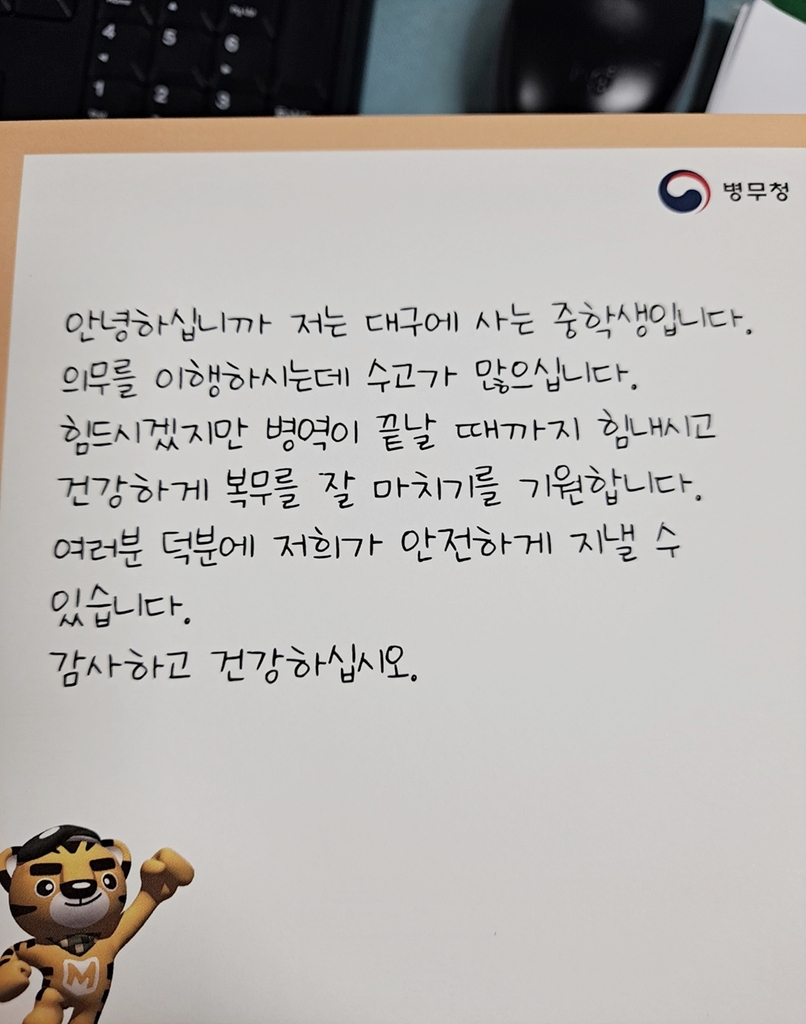 4 5 6
1 2 3
병무청
안녕하십니까 저는 대구에 사는 중학생입니다.
의무를 이행하시는데 수고가 많으십니다.
힘드시겠지만 병역이 끝날 때까지 힘내시고
건강하게 복무를 잘 마치기를 기원합니다.
여러분 덕분에 저희가 안전하게 지낼 수
있습니다.
감사하고 건강하십시오.
M